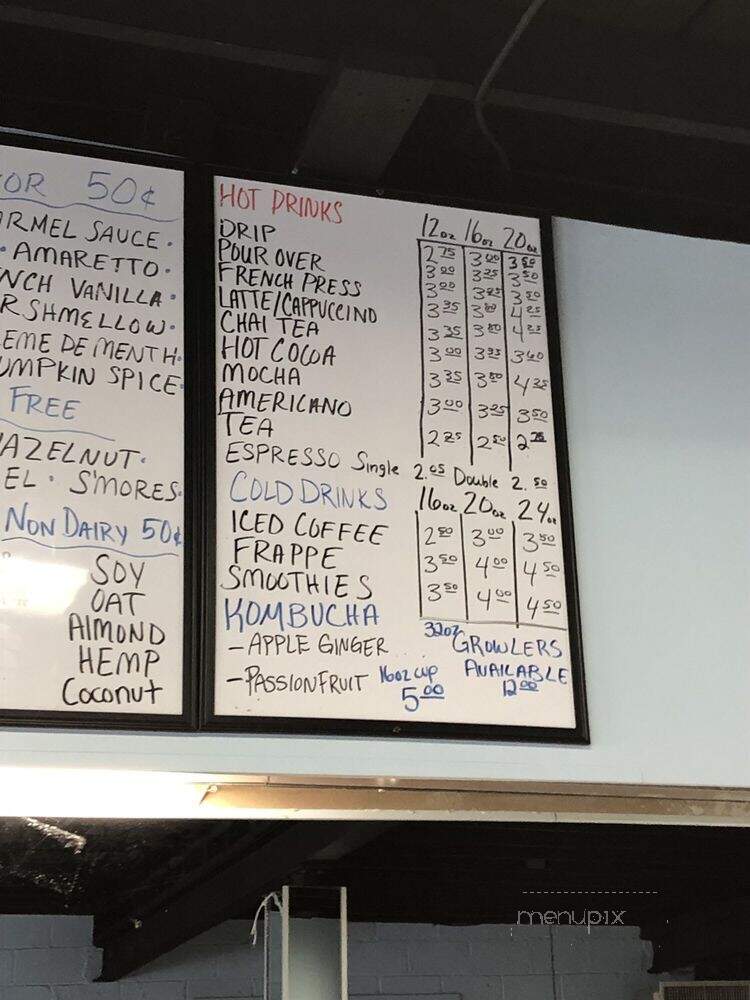 OR 50¢
RMEL SAUCE ·
· AMARETTO ·
NCH VANILLA ·
RSHMELLOW ·
EME DE MENTH ·
UMPKIN SPICE ·
FREE
AZELNUT ·
EL · S'MORES ·
NON DAIRY 50¢
SOY
OAT
AlMOND
HEMP
Coconut
HOT DRINKS
12oz 16oz 20oz
DRIP 2 75 3 00 3 50
POUR OVER 3 00 3 25 3 50
FRENCH PRESS 3 00 3 25 3 50
LATTE/CAPPUCCINO 3 35 3 80 4 25
CHAI TEA 3 35 3 80 4 25
HOT COCOA 3 00 3 25 3 60
MOCHA 3 35 3 80 4 25
AMERICANO 3 00 3 25 3 50
TEA 2 25 2 50 2 75
ESPRESSO Single 2.05 Double 2.50
COLD DRINKS 16oz 20oz 24oz
ICED COFFEE 2 50 3 00 3 50
FRAPPE 3 50 4 00 4 50
SMOOTHIES 3 50 4 00 4 50
KOMBUCHA 32oz GROWLERS
– APPLE GINGER AVAILABLE
– PASSIONFRUIT 16oz cup 5 00 12 00
menupix